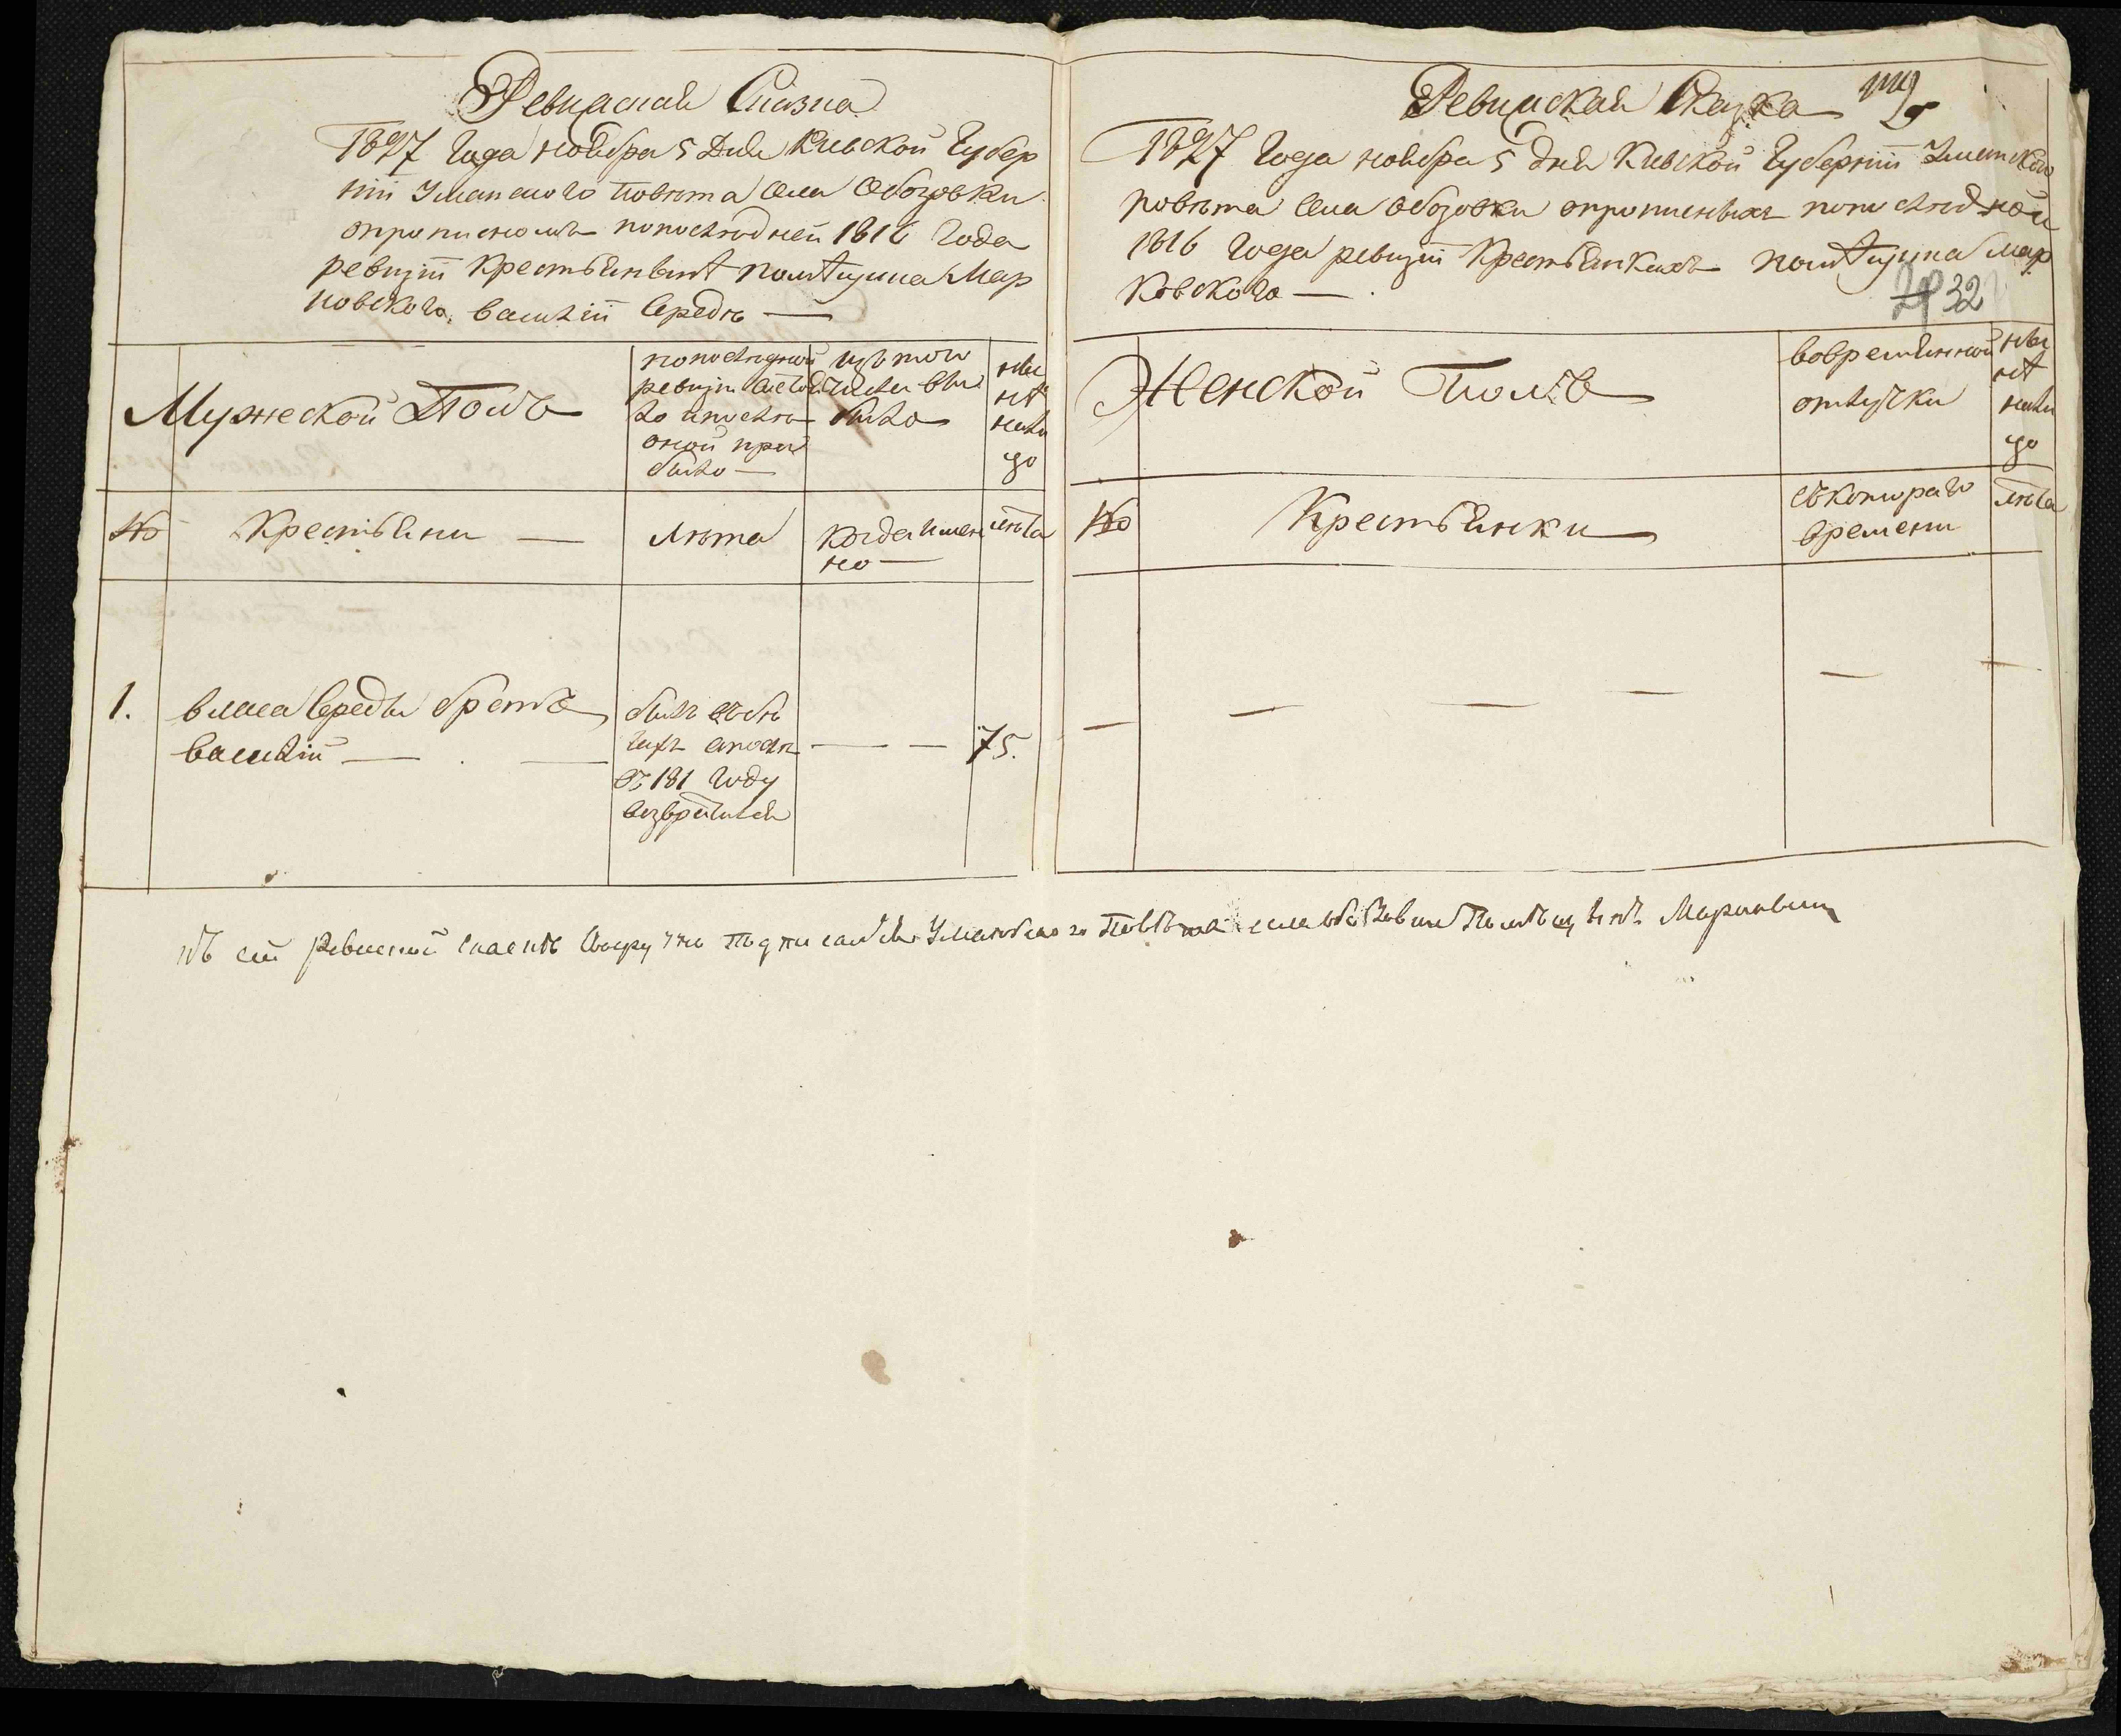 Ревизская Сказка
1827 Года ноября 5 Дня Киевской Губер
нии Уманского повета села Обозовки
опрописномъ попоследней 1816 Года
ревизии Крестьянинѣ помѣщика Мар
ковского, василии Середѣ —
Мужеской Полъ
попоследней
ревизии состоя
ло ипосле
оной при
было —
изъ того
числа вы
было
ны
нѣ
нали
цо
№ Крестьяни — лѣта
Когда имен
но —
лѣта
1. власа Середы братъ
василий —
былъ въбѣ
гахъ апосля
въ 181 Году
возвратился
— — 75.
Ревизская Сказка
1827 Года ноября 5 дня Киевской Губернии Уманского
повета Села Обозовки опрописныхъ попоследней
1816 Года ревизии Крестьянкахъ помѣщика Мар
ковского —
32
Женской Полъ
вовременной
отлучки
ны
нѣ
нали
цо
№ Крестьянки
съкотораго
времени
лѣта
— — — — — —
къ сей Ревиской скаскѣ своеручно подписался Уманского Повѣта села Обозовки Помѣщикъ Марковский